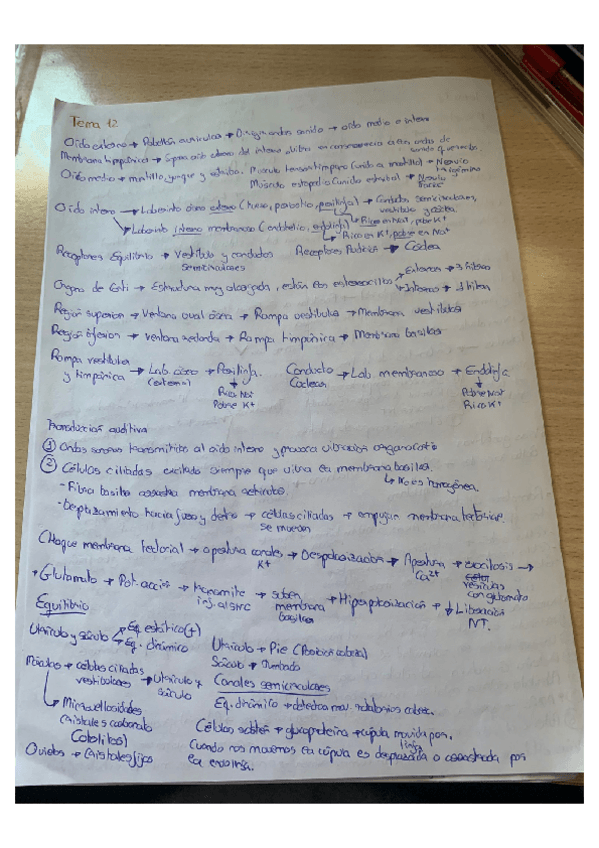 Tema 12
Oído externo → Pabellón auricular → Dirigir ondas sonido → oído medio e interno
Membrana timpánica → Separa oído externo del interno, vibra en consecuencia a las ondas de sonido que recibe.
Oído medio → martillo, yunque y estribo. Músculo tensor tímpano (unido a martillo) → Nervio trigémino
Músculo estapedio (unido estribo) → Nervio
Oído interno → Laberinto óseo externo (hueso, periostio, perilinfa) → Conductos semicirculares, vestíbulo y cóclea.
↳ Rica en Na+, pobre K+
→ Laberinto interno membranoso (endotelio, endolinfa)
↳ Rica en K+, pobre en Na+
Receptores Equilibrio → Vestíbulo y conductos semicirculares
Receptores Auditivos → Cóclea
Órgano de Corti → Estructura muy alargada, están los → Externas → 3 hileras
→ Internas → 1 hilera
Región superior → Ventana oval → Rampa vestibular → Membrana
Región inferior → ventana redonda → Rampa timpánica → Membrana basilar
Rampa vestibular y timpánica → Lab. óseo (externo) → Perilinfa.
↓ Rica Na+ Pobre K+
Conducto Coclear → Lab membranoso → Endolinfa
↓ Pobre Na+ Rica K+
Transducción auditiva
① Ondas sonoras transmitidas al oído interno y provoca vibración órgano Corti
② Células ciliadas excitado siempre que vibra la membrana basilar.
↳ No es homogénea.
- Fibra basilar membrana
- Desplazamiento hacia y dentro → células ciliadas se muevan → empujan membrana tectorial.
Choque membrana tectorial → apertura canales K+ → Despolarización → Apertura Ca2+ → exocitosis vesículas con glutamato →
→ Glutamato → Pot. acción → transmite al SNC → suben membrana basilar → Hiperpolarización → ↓ Liberación NT.
Equilibrio
Utrículo y sáculo → Eq. estático
→ Eq. dinámico
Utrículo → Pie (Posición cabeza)
Sáculo → Tumbado
Máculas → células ciliadas vestibulares → Utrículo y sáculo
Canales semicirculares
Eq. dinámico → detectar mov. rotatorios cabeza.
↳ Microvellosidades
Cristales carbonato (otolitos)
Células → glucoproteína → cúpula movida por linfa
Cristales fijos
Cuando nos movemos la cúpula es desplazada o arrastrada por la endolinfa.